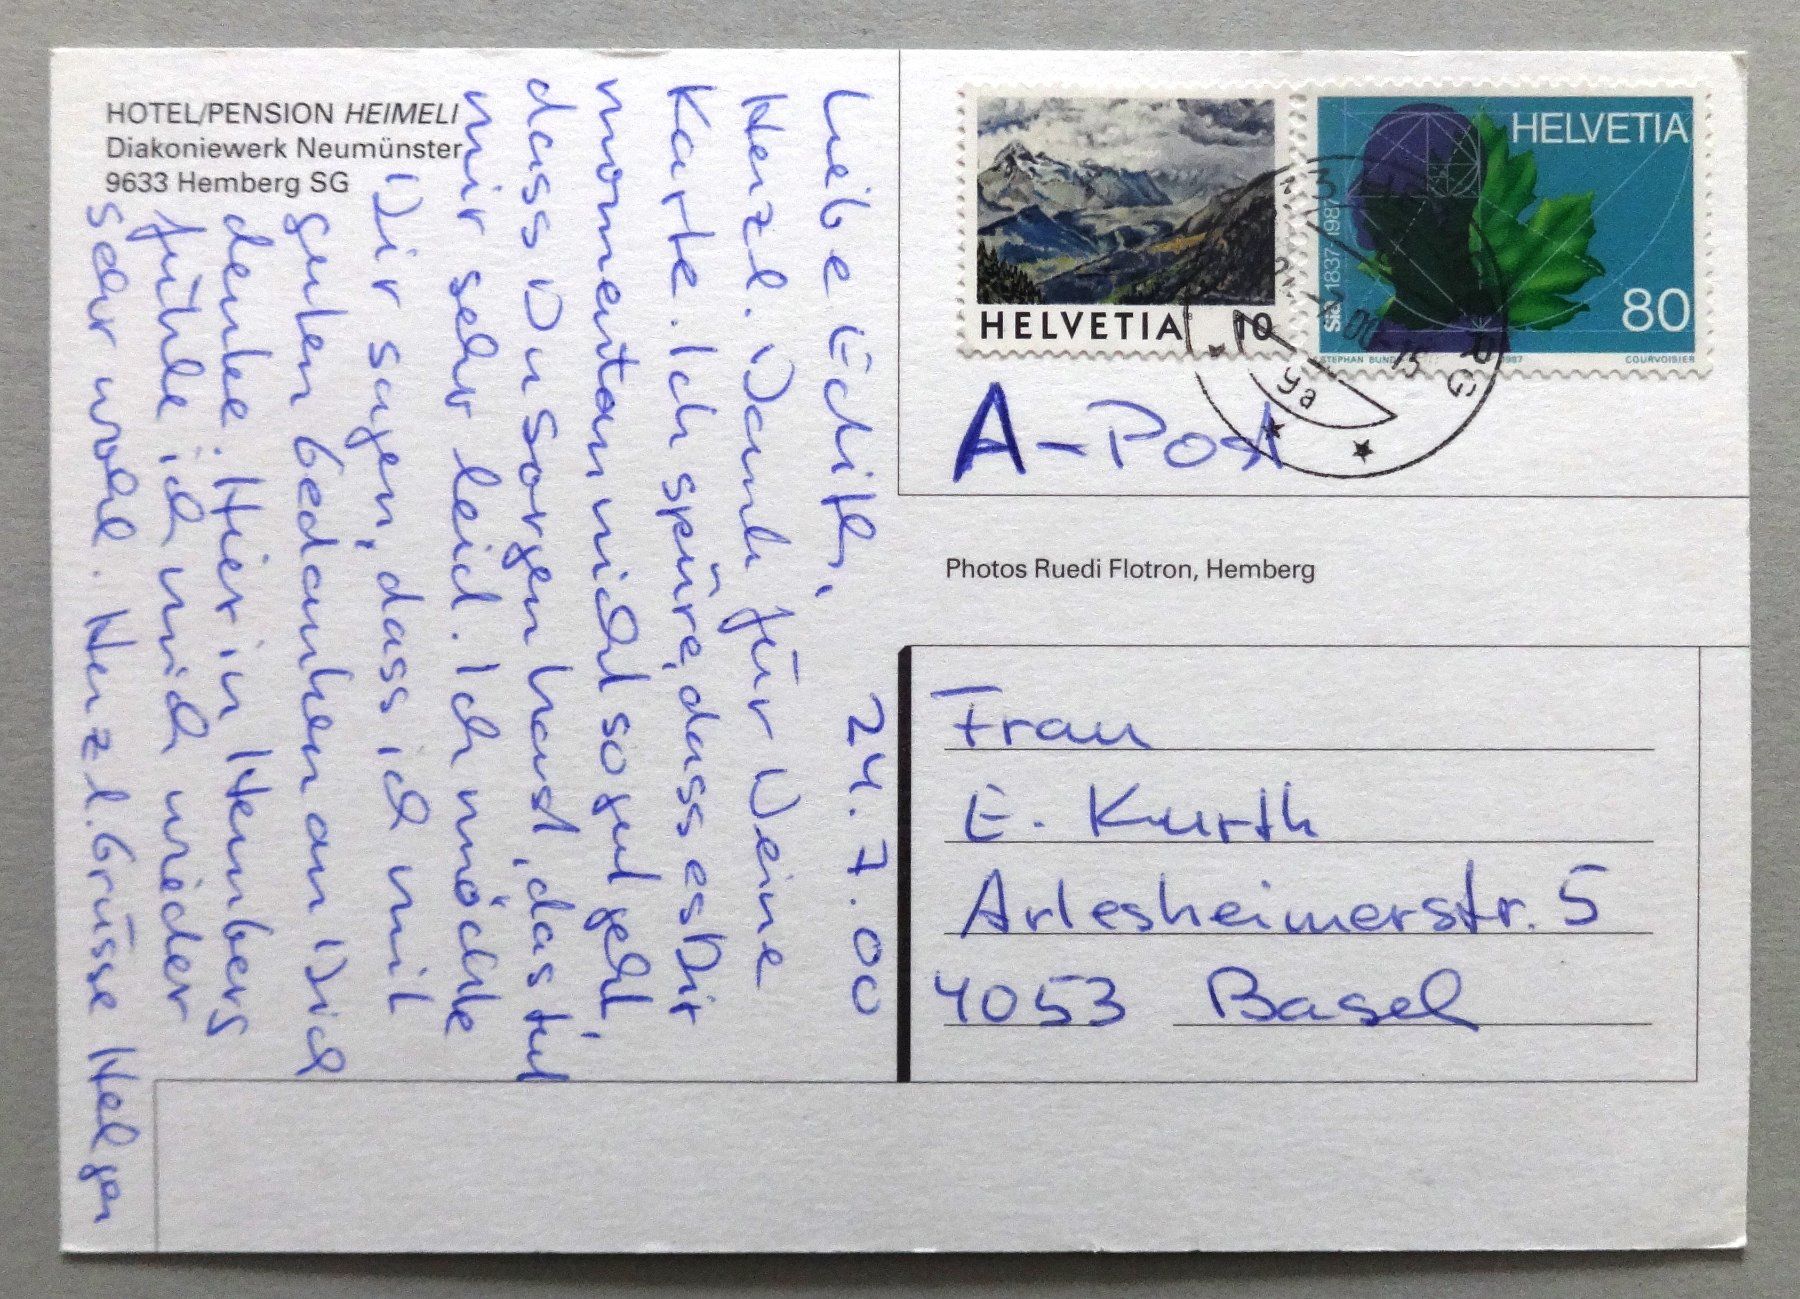 HOTEL/PENSION HEIMELI
Diakoniewerk Neumünster
9633 Hemberg SG
24.7.00
Liebe Edith,
Herzl. Dank für Deine
Karte. Ich spüre, dass es Dir
momentan nicht so gut geht,
dass Du Sorgen hast, das tut
mir sehr leid. Ich möchte
Dir sagen, dass ich mit
guten Gedanken an Dich
denke. Hier in Hemberg
fühle ich mich wieder
sehr wohl. Herzl. Grüsse
HELVETIA 10
HELVETIA
Sia 1837 1987
80
STEPHAN BUND 1987 COURVOISIER
A-Post
Photos Ruedi Flotron, Hemberg
Frau
E. Kurth
Arlesheimerstr. 5
4053 Basel